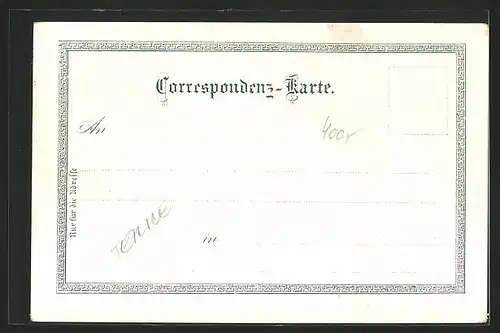 Correspondenz-Karte.
An
400,-
Nur für die Adresse
VENICE
in